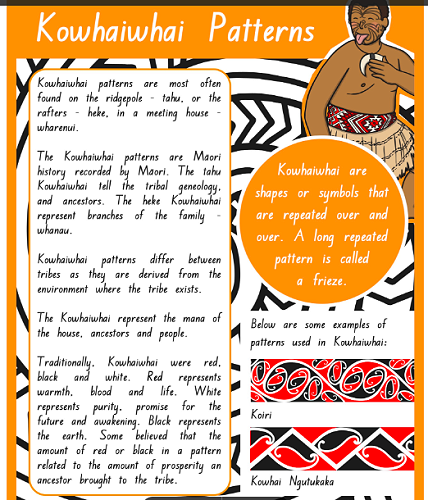 Kowhaiwhai Patterns
Kowhaiwhai patterns are most often
found on the ridgepole - tahu, or the
rafters - heke, in a meeting house -
wharenui.
The Kowhaiwhai patterns are Maori
history recorded by Maori. The tahu
Kowhaiwhai tell the tribal geneology,
and ancestors. The heke Kowhaiwhai
represent branches of the family -
whanau.
Kowhaiwhai patterns differ between
tribes as they are derived from the
environment where the tribe exists.
The Kowhaiwhai represent the mana of
the house, ancestors and people.
Traditionally, Kowhaiwhai were red,
black and white. Red represents
warmth, blood and life. White
represents purity, promise for the
future and awakening. Black represents
the earth. Some believed that the
amount of red or black in a pattern
related to the amount of prosperity an
ancestor brought to the tribe.
Kowhaiwhai are
shapes or symbols that
are repeated over and
over. A long repeated
pattern is called
a frieze.
Below are some examples of
patterns used in Kowhaiwhai:
Koiri
Kowhai Ngutukaka